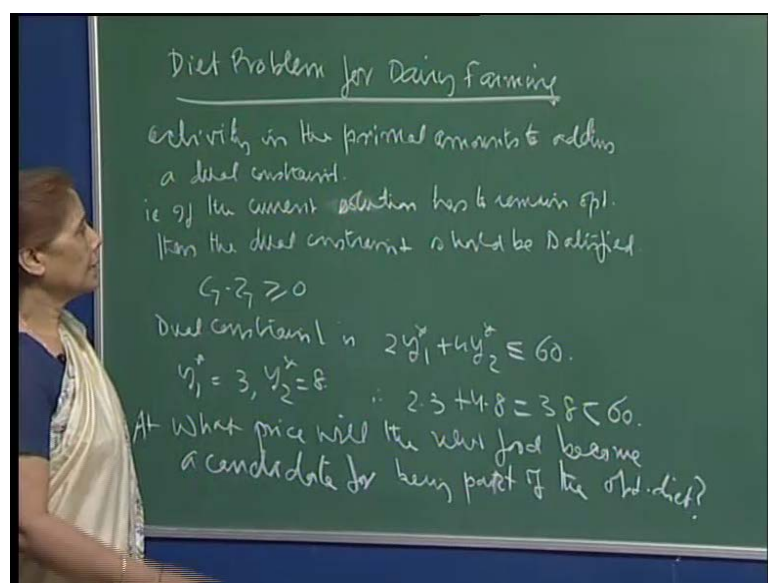 Diet Problem for Dairy Farming
activity in the primal amounts to adding
a dual constraint.
ie if the current solution has to remain opt.
then the dual constraint should be satisfied.
C₇-Z₇ ≥ 0
Dual constraint is 2y₁* + 4y₂* ≤ 60.
y₁* = 3, y₂* = 8. ∴ 2·3 + 4·8 = 38 < 60.
At what price will the new food become
a candidate for being part of the opt. diet?